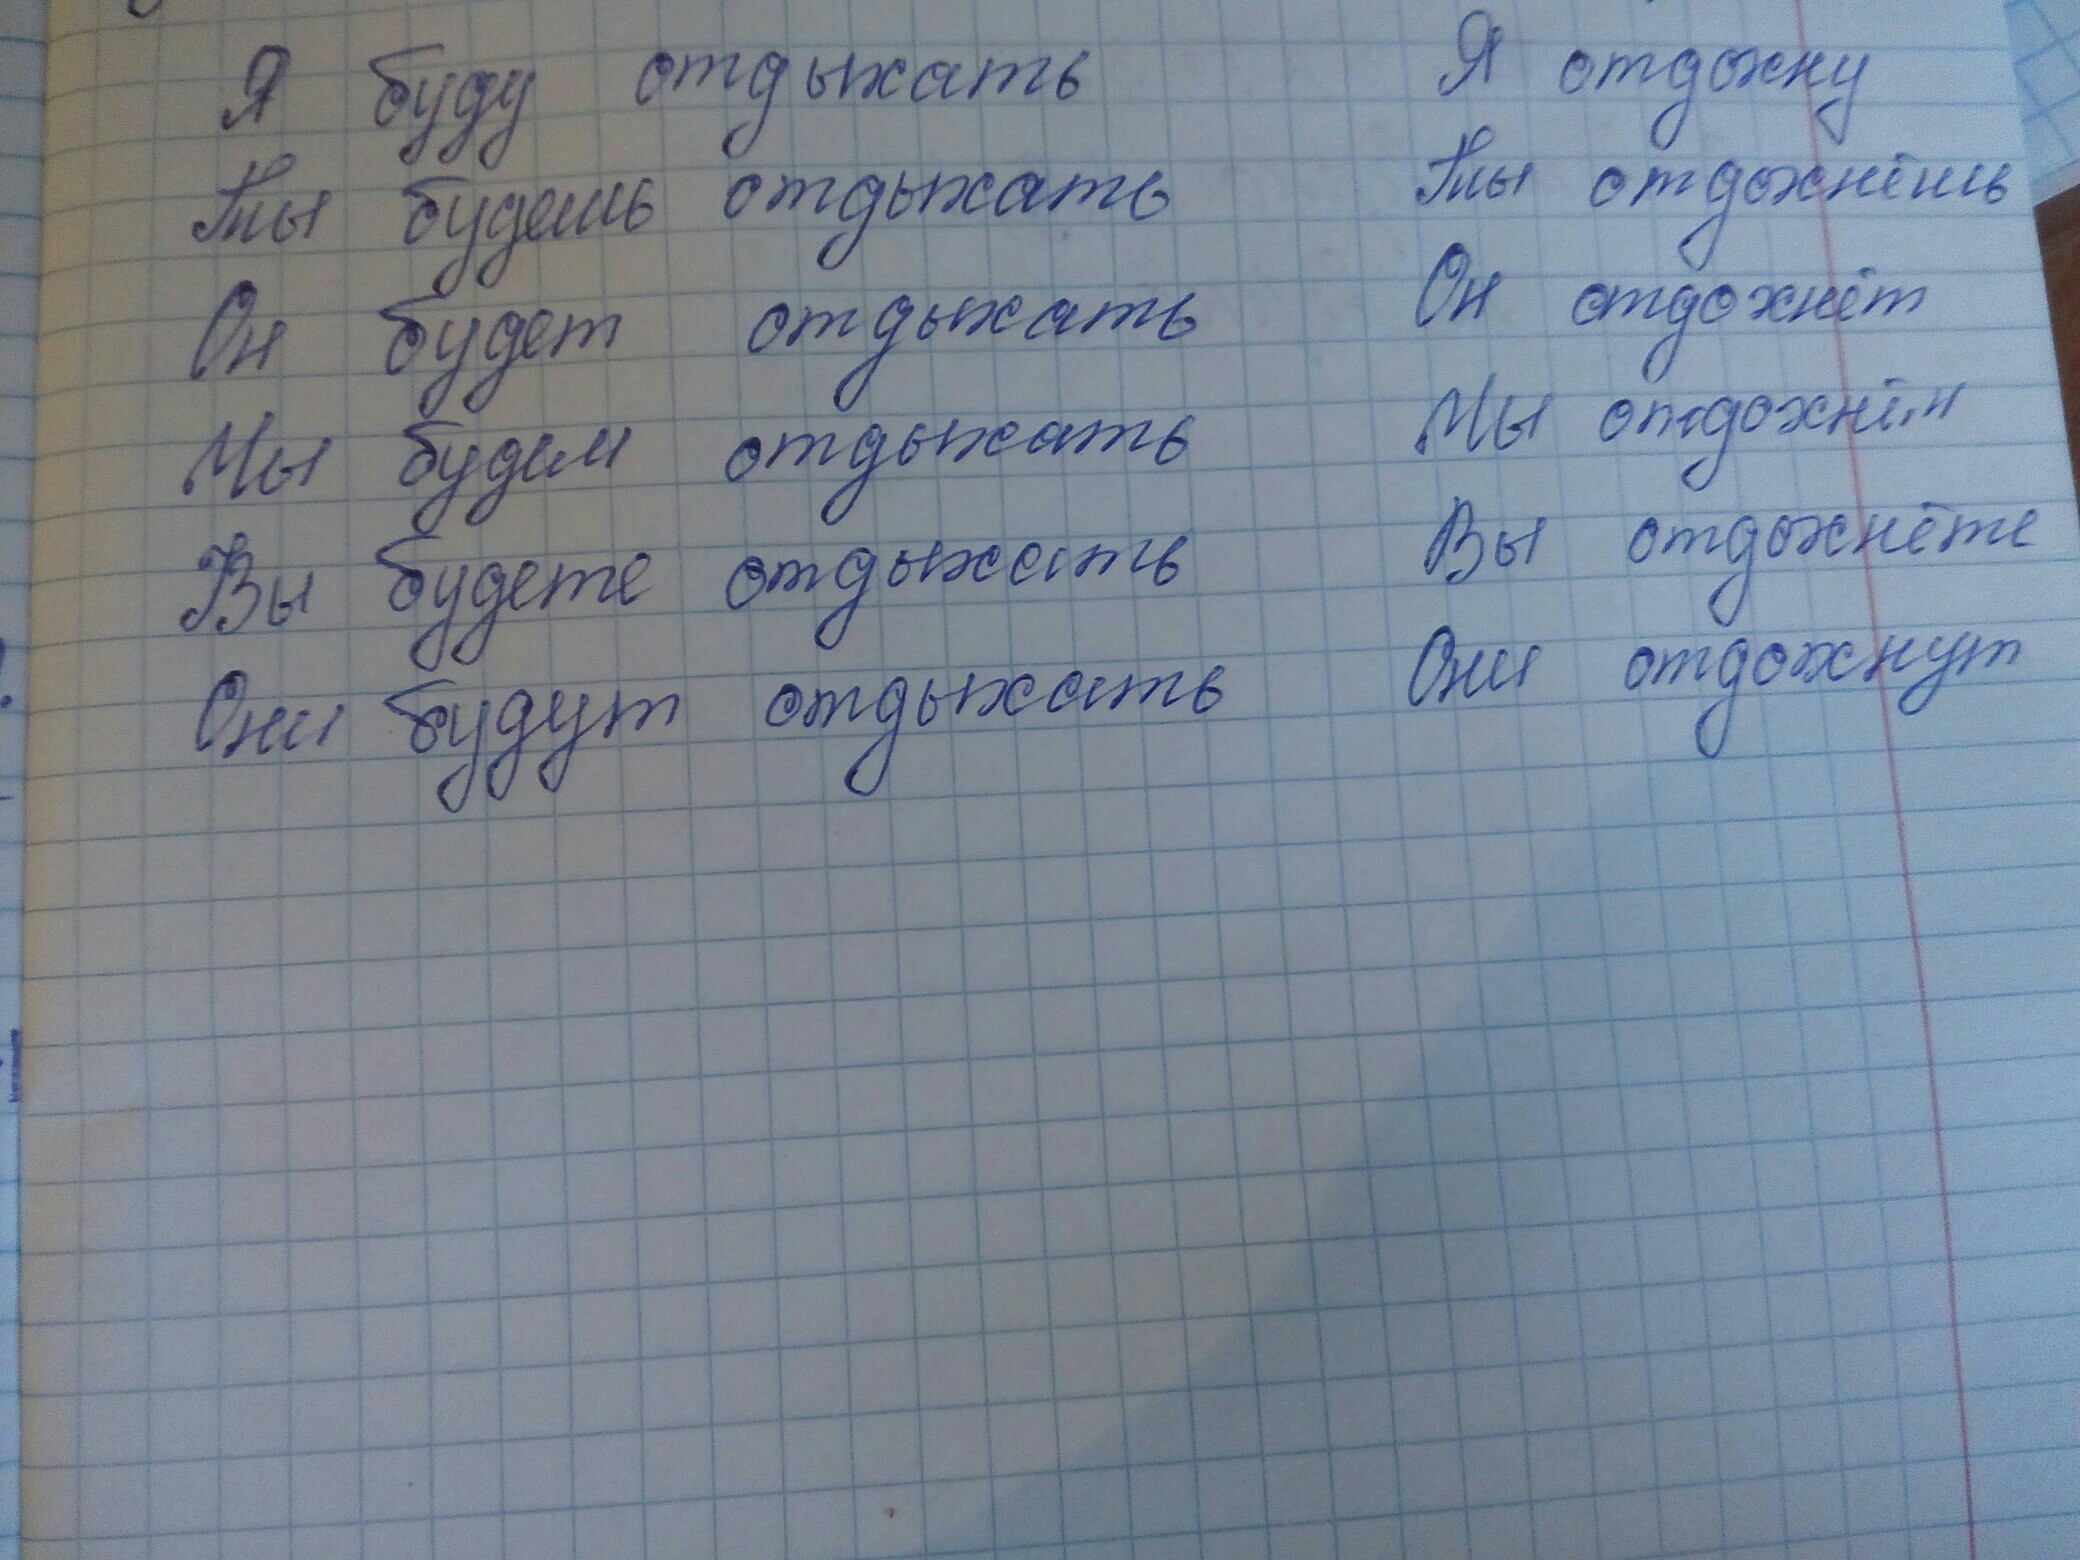 Я буду отдыхать Я отдохну
Ты будешь отдыхать Ты отдохнёшь
Он будет отдыхать Он отдохнёт
Мы будем отдыхать Мы отдохнём
Вы будете отдыхать Вы отдохнёте
Они будут отдыхать Они отдохнут